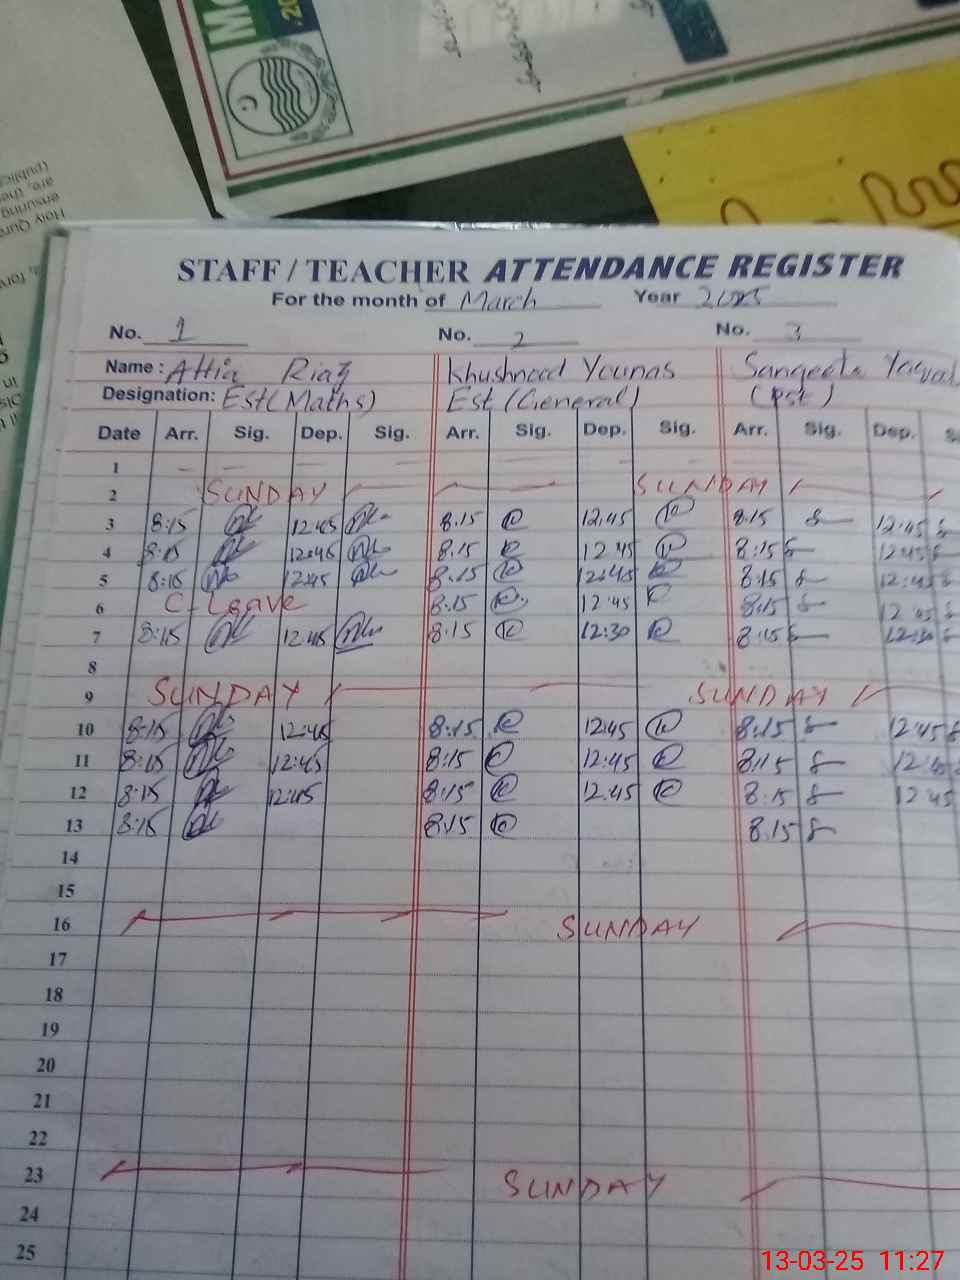 MO
20
(public)
are, the
ensuring
Holy Qura
STAFF / TEACHER ATTENDANCE REGISTER
For the month of March Year 2025
No. 1 No. 2 No. 3
Name : Attia Riaz Khushnood Younas Sangeeta
Designation: Est (Maths) Est (General) (Pst)
Date Arr. Sig. Dep. Sig. Arr. Sig. Dep. Sig. Arr. Sig. Dep. S
1 — — — —
2 SUNDAY SUNDAY
3 8:15 12:45 8.15 12:45 8:15 12:45
4 8:15 12:45 8.15 12 45 8:15 12:45
5 8:15 12:45 8.15 12:45 8:15 12:45
6 C-Leave 8.15 12'45 8:15 12 45
7 8:15 12:45 8:15 12:30 8:15 12:30
8
9 SUNDAY SUNDAY
10 8:15 12:45 8:15 12:45 8:15 12'45
11 8:15 12:45 8:15 12:45 8:15 12:45
12 8:15 12:45 8:15 12:45 8:15 12 45
13 8:15 8:15 8.15
14
15
16 SUNDAY
17
18
19
20
21
22
23 SUNDAY
24
25
13-03-25 11:27